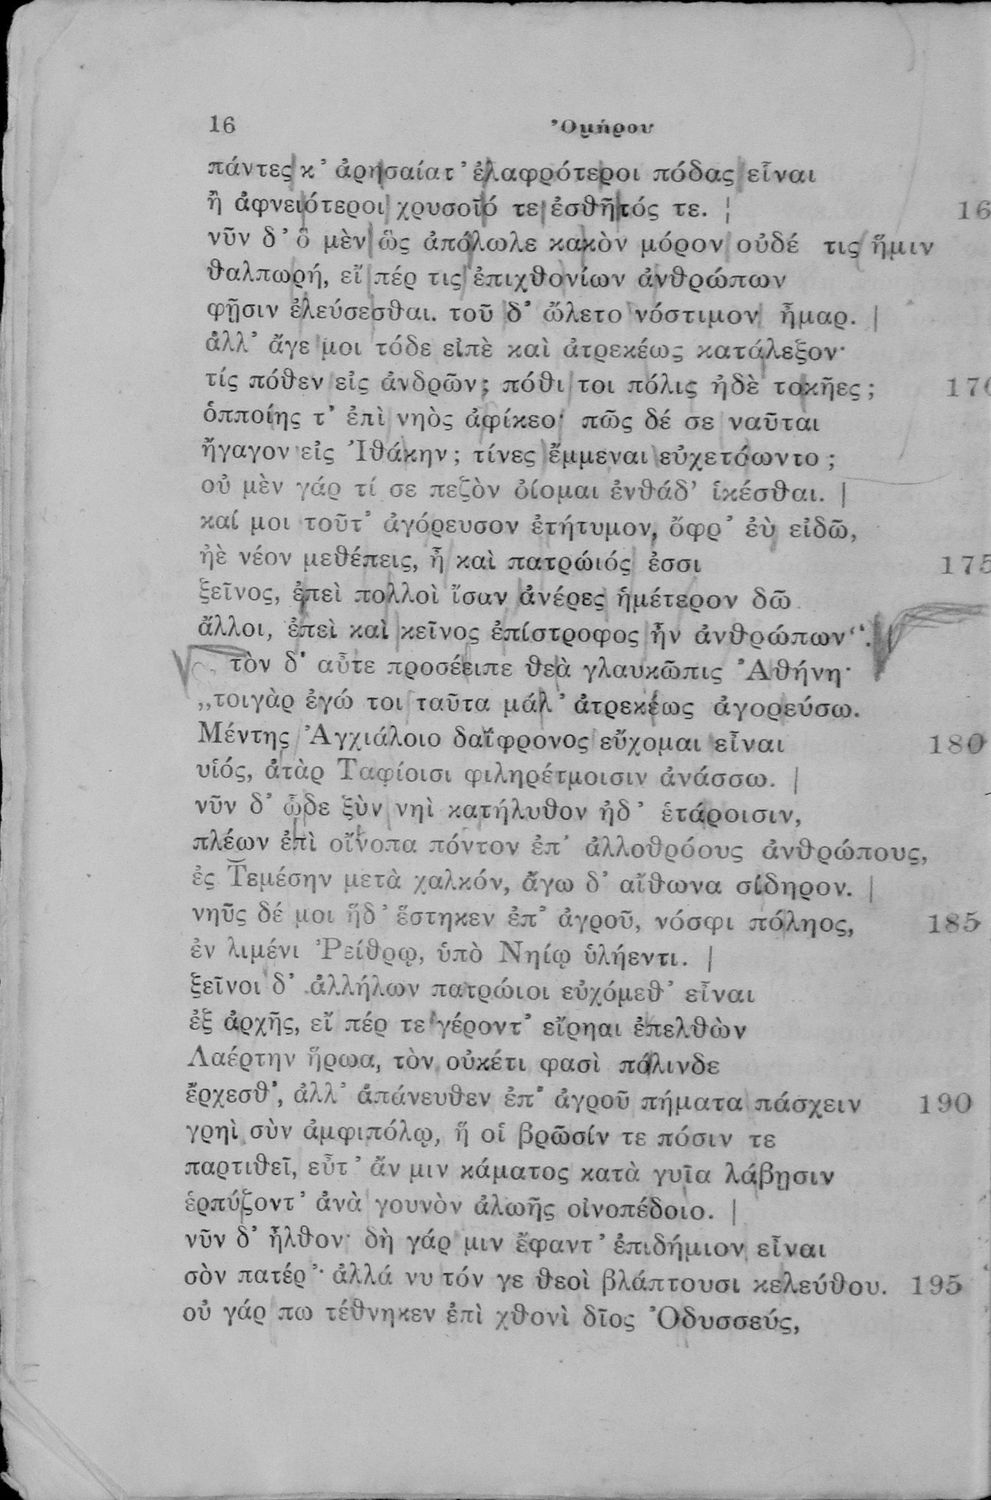 16 Ὁμήρου
πάντες κ’ ἀρησαίατ’ ἐλαφρότεροι πόδας εἶναι
ἢ ἀφνειότεροι χρυσοῖό τε ἐσθῆτός τε.
νῦν δ’ ὃ μὲν ὣς ἀπόλωλε κακὸν μόρον οὐδέ τις ἥμιν
θαλπωρή, εἴ πέρ τις ἐπιχθονίων ἀνθρώπων
φῇσιν ἐλεύσεσθαι. τοῦ δ’ ὤλετο νόστιμον ἦμαρ.
ἀλλ’ ἄγε μοι τόδε εἰπὲ καὶ ἀτρεκέως κατάλεξον·
τίς πόθεν εἰς ἀνδρῶν; πόθι τοι πόλις ἠδὲ τοκῆες; 170
ὁπποίης τ’ ἐπὶ νηὸς ἀφίκεο· πῶς δέ σε ναῦται
ἤγαγον εἰς Ἰθάκην; τίνες ἔμμεναι εὐχετόωντο;
οὐ μὲν γάρ τί σε πεζὸν ὀίομαι ἐνθάδ’ ἱκέσθαι.
καί μοι τοῦτ’ ἀγόρευσον ἐτήτυμον, ὄφρ’ ἐὺ εἰδῶ,
ἠὲ νέον μεθέπεις, ἦ καὶ πατρώιός ἐσσι 175
ξεῖνος, ἐπεὶ πολλοὶ ἴσαν ἀνέρες ἡμέτερον δῶ
ἄλλοι, ἐπεὶ καὶ κεῖνος ἐπίστροφος ἦν ἀνθρώπων“.
τὸν δ’ αὖτε προσέειπε θεὰ γλαυκῶπις Ἀθήνη·
„τοιγὰρ ἐγώ τοι ταῦτα μάλ’ ἀτρεκέως ἀγορεύσω.
Μέντης Ἀγχιάλοιο δαΐφρονος εὔχομαι εἶναι 180
υἱός, ἀτὰρ Ταφίοισι φιληρέτμοισιν ἀνάσσω.
νῦν δ’ ὧδε ξὺν νηὶ κατήλυθον ἠδ’ ἑτάροισιν,
πλέων ἐπὶ οἴνοπα πόντον ἐπ’ ἀλλοθρόους ἀνθρώπους,
ἐς Τεμέσην μετὰ χαλκόν, ἄγω δ’ αἴθωνα σίδηρον.
νηῦς δέ μοι ἥδ’ ἕστηκεν ἐπ’ ἀγροῦ, νόσφι πόληος, 185
ἐν λιμένι Ῥείθρῳ, ὑπὸ Νηίῳ ὑλήεντι.
ξεῖνοι δ’ ἀλλήλων πατρώιοι εὐχόμεθ’ εἶναι
ἐξ ἀρχῆς, εἴ πέρ τε γέροντ’ εἴρηαι ἐπελθὼν
Λαέρτην ἥρωα, τὸν οὐκέτι φασὶ πόλινδε
ἔρχεσθ’, ἀλλ’ ἀπάνευθεν ἐπ’ ἀγροῦ πήματα πάσχειν 190
γρηὶ σὺν ἀμφιπόλῳ, ἥ οἱ βρῶσίν τε πόσιν τε
παρτιθεῖ, εὖτ’ ἄν μιν κάματος κατὰ γυῖα λάβῃσιν
ἑρπύζοντ’ ἀνὰ γουνὸν ἀλωῆς οἰνοπέδοιο.
νῦν δ’ ἦλθον· δὴ γάρ μιν ἔφαντ’ ἐπιδήμιον εἶναι
σὸν πατέρ’· ἀλλά νυ τόν γε θεοὶ βλάπτουσι κελεύθου. 195
οὐ γάρ πω τέθνηκεν ἐπὶ χθονὶ δῖος Ὀδυσσεύς,